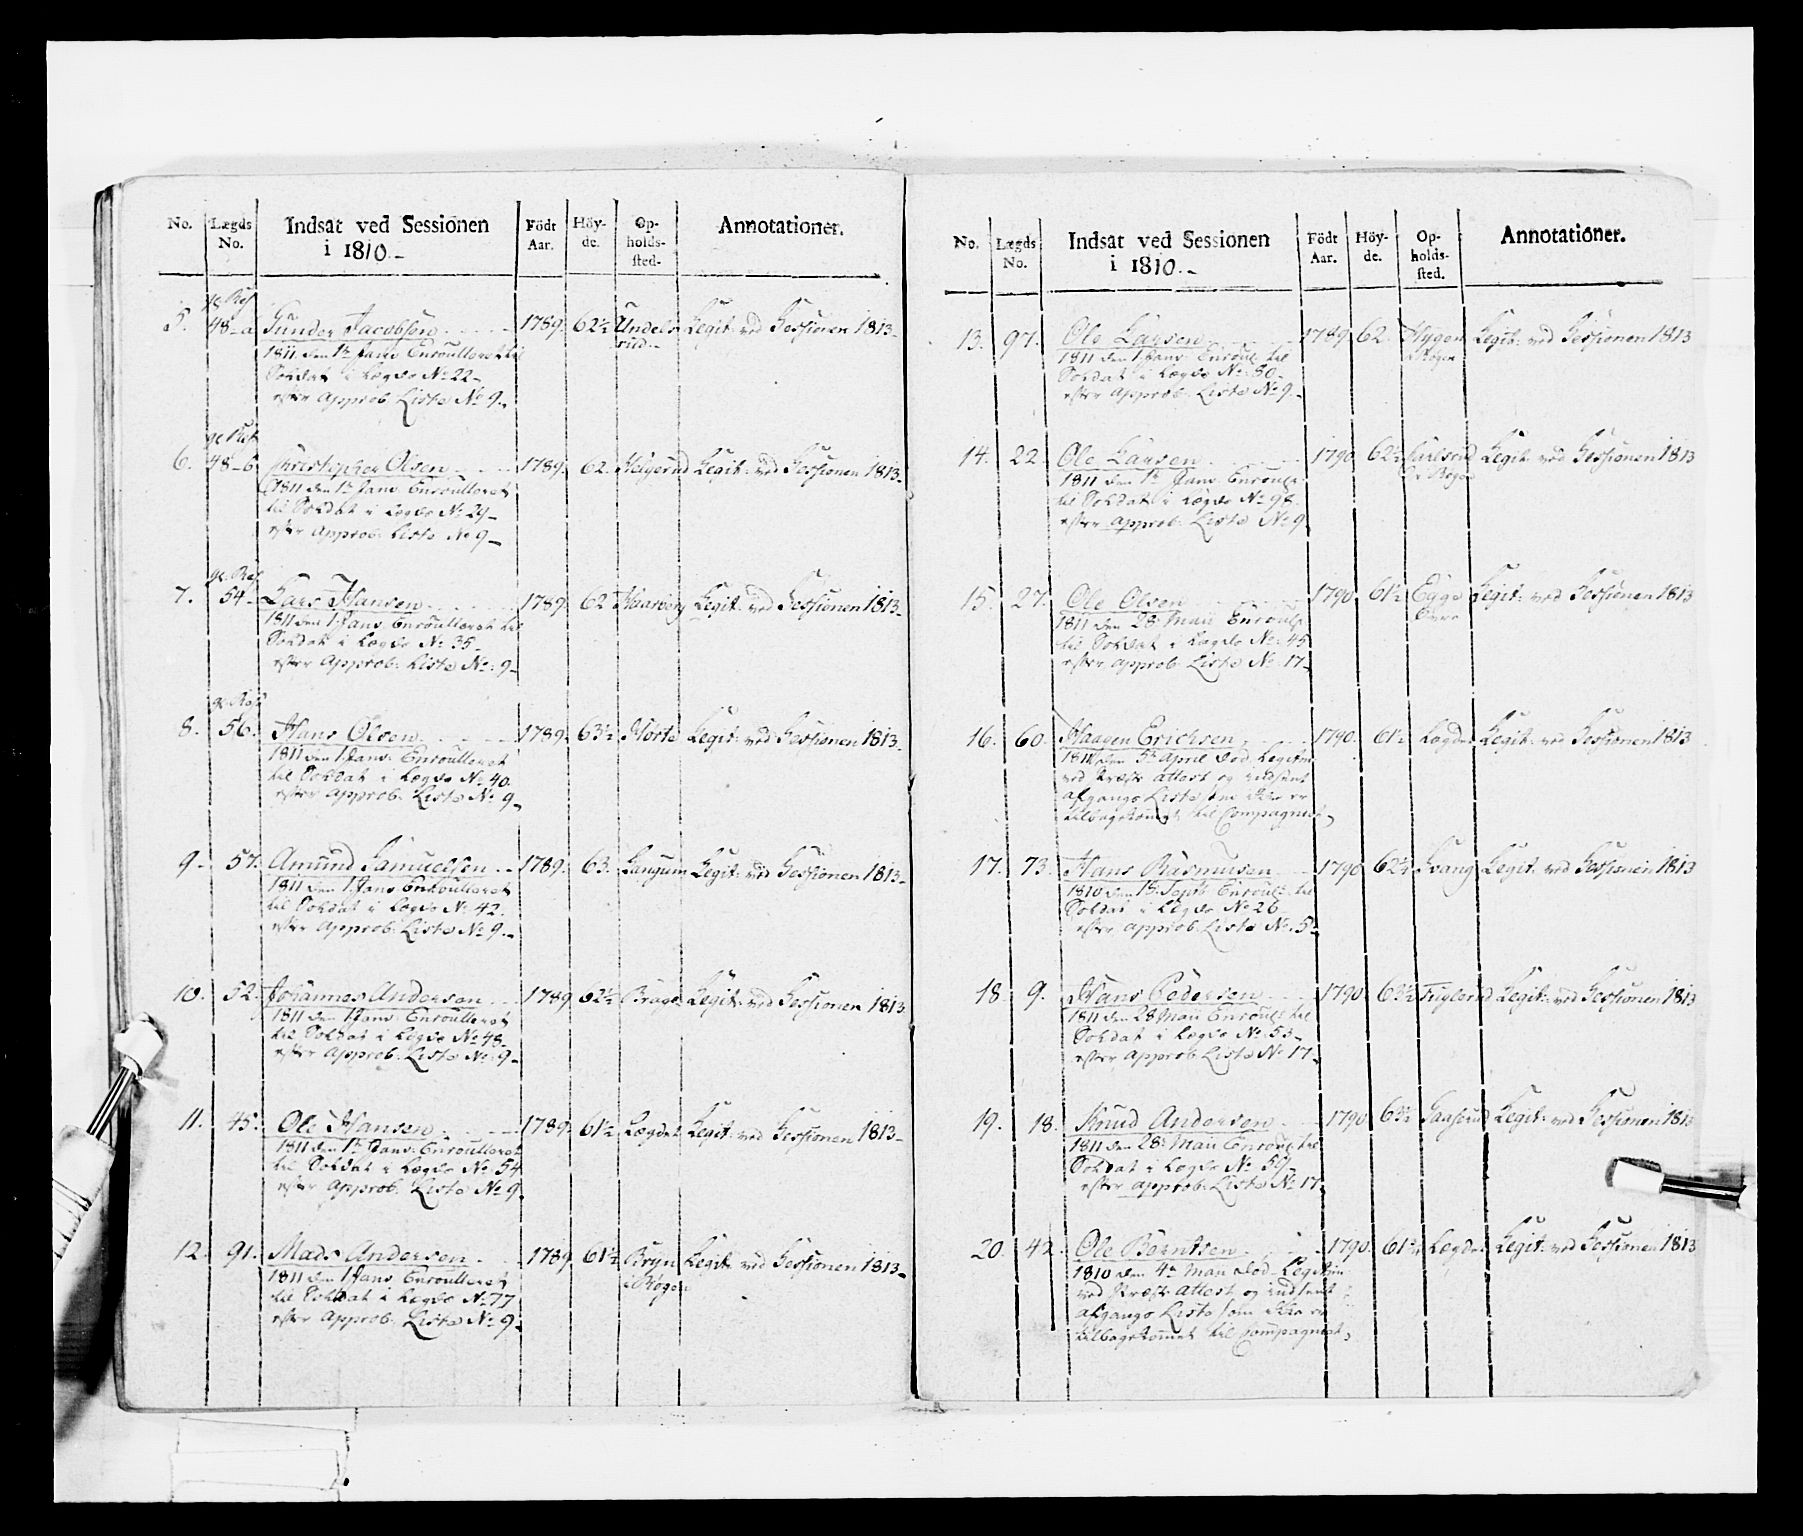 No. Lægds No. Indsat ved Sessionen i 1810.- Födt Aar. Höyde. Opholdssted. Annotationer.
5. 48-a Gunder Jacobsen 1789. 62½ Undelsrud.- Legit: ved Sessionen 1813-
1811 den 1te Janv. Enroulleret til
Soldat i Lægds No 22-
efter Approb. Liste No 9.-
6. 48-b Christopher Olsen 1789. 62. Helgerud Legit: ved Sessionen 1813-
1811 den 1te Janv. Enroulleret
til Soldat i Lægds No 29-
efter Approb: Liste No 9-
7. 54- Lars Hansen 1789. 62 Haarberg Legit: ved Sessionen 1813-
1811 den 1 Janv. Enroulleret til
Soldat i Lægds No 35-
efter Approb: Liste No: 9-
8. 56. Hans Olsen 1789. 63½ Horte Legit: ved Sessionen 1813.
1811 den 1 Janv. Enroulleret
til Soldat i Lægds No 40.
efter Approb: Liste No 9-
9- 57. Amund Samuelsen 1789. 63. Langum Legit: ved Sessionen 1813-
1811 den 1 Janv Enroulleret
til Soldat i Lægds No 42.
efter Approb: Liste No 9.-
10. 52. Johannes Andersen 1789 62½ Brage Legit: ved Sessionen 1813.
1811 den 1 Janv. Enroulleret
til Soldat i Lægds No 48-
efter Approb: Liste No: 9-
11. 45. Ole Hansen 1789. 61½ Lægdet Legit: ved Sessionen 1813-
1811 den 1te Janv. Enroulleret
til Soldat i Lægds No 54
efter Approb. Liste No 9.
12. 91. Mads Andersen 1789 61½ Bryn i Röger Legit: ved Sessionen 1813-
1811 den 1 Janv. Enroulleret
til Soldat i Lægds No 77
efter Approb: Liste No 9-
No. Lægds No. Indsat ved Sessionen i 1810.- Födt Aar. Höyde. Opholdssted. Annotationer.
13. 97. Ole Larsen 1789 62. Hygen i Röger Legit: ved Sessionen 1813
1811 den 1 Janv. Enroul: til
Soldat i Lægds No: 80-
efter Approb: Liste No 9-
14. 22 Ole Larsen 1790 62½ Carlsrud i Röger Legit: ved Sessionen 1813
1811 den 1te Janv. Enroul:
til Soldat i Lægds No 98.
efter Approb: Liste No 9
15. 27. Ole Olsen 1790 61½ Egge Legit: ved Sessionen 1813
1811 den 28: Maii Enroul:
til Soldat i Lægds No: 45
efter Approb: Liste No: 17-
16. 60. Haagen Erichsen 1790. 61½ Lægdet Legit: ved Sessionen 1813
den 5te April död, Legitim:
ved Præste attest og indsent
afgangs Liste som ikke er
tilbagekommet til Compagniet,
17. 73. Hans Rasmusen 1790 62½ Svang Legit: ved Sessionen 1813
1810 den 18: Septb: Enroul: til
Soldat i Lægds No 26
efter Approb. Liste No. 5-
18 9. Hans Pedersen 1790 63½ Fuglerud Legit: ved Sessionen 1813
1811 den 28 Maii Enroul: til
Soldat i Lægds No. 53-
efter Approb: Liste No 17-
19. 18. Knud Andersen 1790 63½ Gaaserud Legit: ved Sessionen 1813
1811 den 28: Maii Enroul: til
Soldat i Lægds No 59-
efter Approb: Liste No 17-
20. 42. Ole Berntsen 1790. 61½ Lægdet Legit: ved Sessionen 1813
1810 den 4de Maii död- Legitim:
ved Præste Attest og indsent
afgangs Liste som ikke er
tilbagekommet til Compagniet,